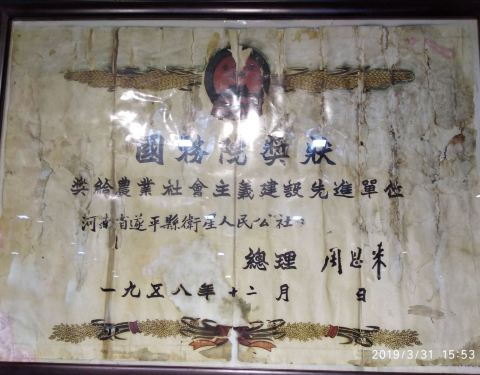 國務院獎狀
獎給農業社會主义建設先進單位
河南省遂平縣衛星人民公社:
總理 周恩来
一九五八年十二月 日
2019/3/31 15:53